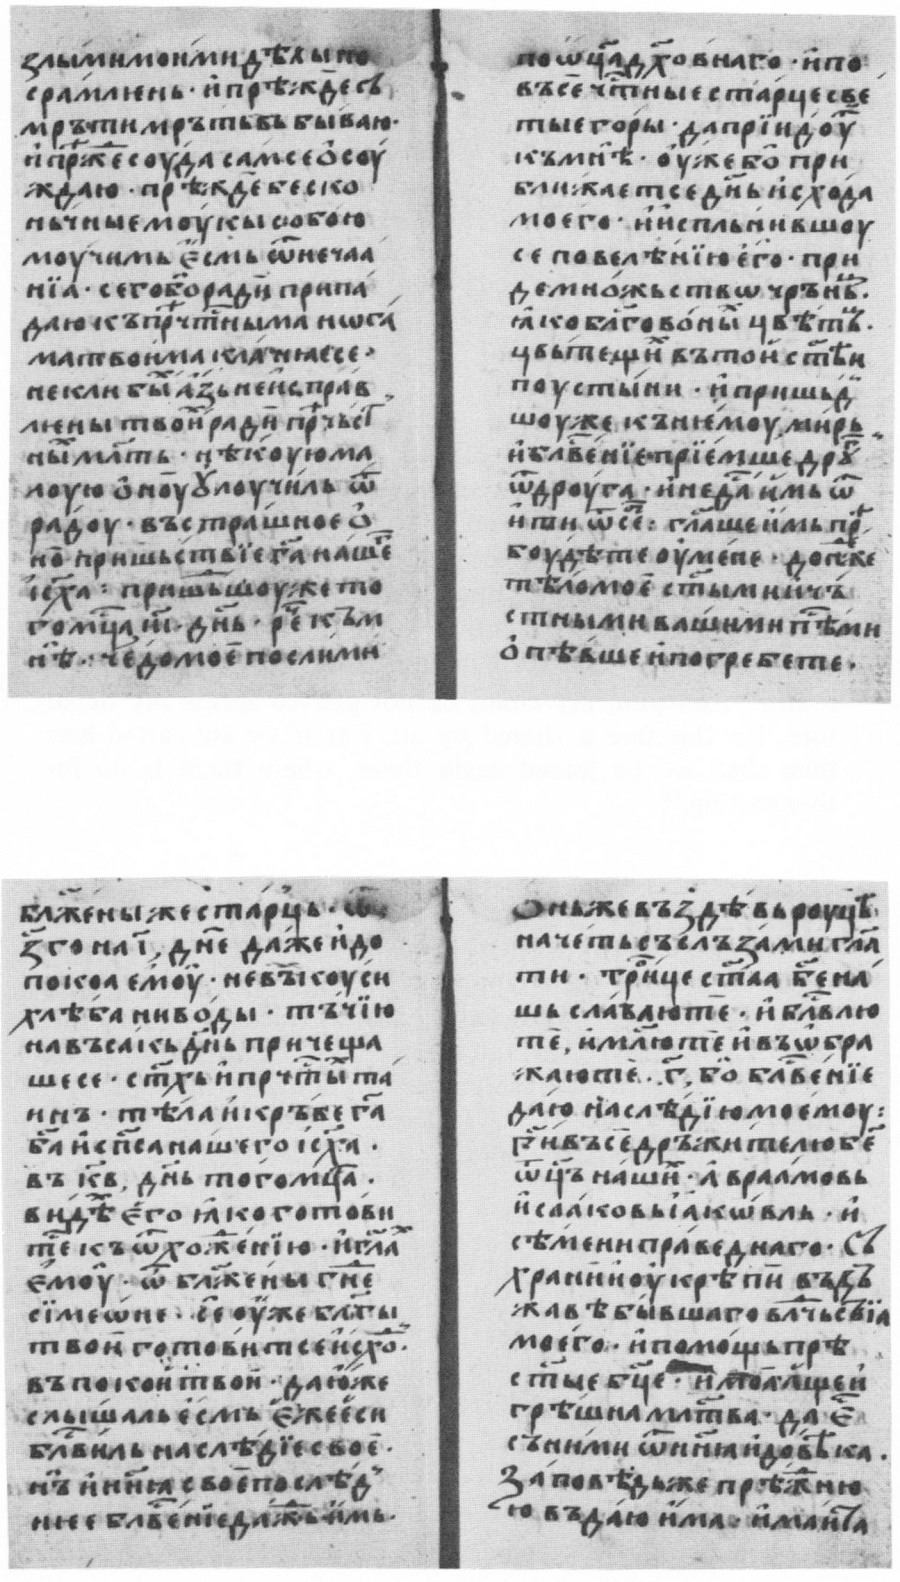 злыми моими дѣлы по
срамлѥнь · и прѣжде съ
мръти мрътвь бываю ·
и прⷤѣе соуда самь се осоу
ждаю · прѣжде беско
ньчныѥ моукы собою
моучимь ѥсмь ѿ нечаа
нїа · сего бѻ ради припа
даю къ прⷱтныма ногa
ма твоима кланꙗѥ се ·
неклиⷨ бы азь неисправ
лѥны твоиⷯ ради прⷱьс
ныⷯ млтвь · нѣкоую ма
лоую оноу ѹлоучиль ѿ
радоу · въ страшноѥ о
но пришьствїе га нашеⷢ
іс ха : пришьⷣшоу же то
го мца ⷥ҃ · днь · рⷱе къ м
нѣ · чедо моѥ посли ми
по ѿца дховнаго · и по
въсе чтныѥ старце све
тыѥ горы · да прїидоуⷮ
къ мнѣ · оуже бо при
ближает се днь исхода
моѥго · и испльнившоу
се повелѣнїю ѥго · при
де множьство чрънць ·
ꙗко блговонны цвѣтць ·
цвьтещи въ тои стѣи
поустыни · и пришьⷣ
шоу же къ нѥмоу, мирь
и блⷭвенїе прїемше дроуⷢ
ѿ дроуга · и не да имь ѿ
ити ѿ сеⷠ · глаше имь прⷪ
боудѣте оу мене · доньⷣеже
тѣло моѥ стыми и чь
стными вашими пѣⷭми
опѣвше и погребете ·
блаженыи же старць · ѿ
ꙁ҃ го на і҃, дне даже и до
покоа ѥмоу · не въкоуси
хлѣба ни воды · тъчїю
на въсакь днь причеща
ше се · стхь и прⷱтыⷯ та
инь · тѣла и кръве га
ба и спса нашего іс ха ·
въ к҃в, днь того мца ·
видѣⷯ ѥго ꙗко готови
те къ ѿхожⷣенїю · и глаⷯ
ѥмоу · ѿ блажены гне
сімеѡне · се оуже блгы
твои готовит се исхоⷣ ·
въ покои твои · даюже
слышаль ѥсмь ѥже ѥси
блⷭвиль наслѣдїе своѥ ·
нь и нынꙗ своѥ послѣⷣ
нѥѥ блⷭвенїе даждь имь ·
Онь же въздѣвь роуцѣ
начеть съ слъзами гла
ти · троице стаа бе на
шь славлю те · и блⷭвлю
те, и млю те и въѡбра
жаю те · г҃, бо блⷭвенїе
даю наслѣдїю моѥмоу :
ги въседръжителю бе
ѿць нашиⷯ · авраамовь
исааковь іакѡвль · и
сѣмени праведнаго · Съ
храни и оукрѣпи въ дръ
жавѣ бывшаго влⷣчьствїа
моѥго · и помощь прѣ
стыѥ бце · и моа аще и
грѣшна млтва · да ѥⷭ
съ ними ѿ нынꙗ и до вѣка ·
Заповѣдь же прѣжⷣнюю
ю въдаю има · имаита